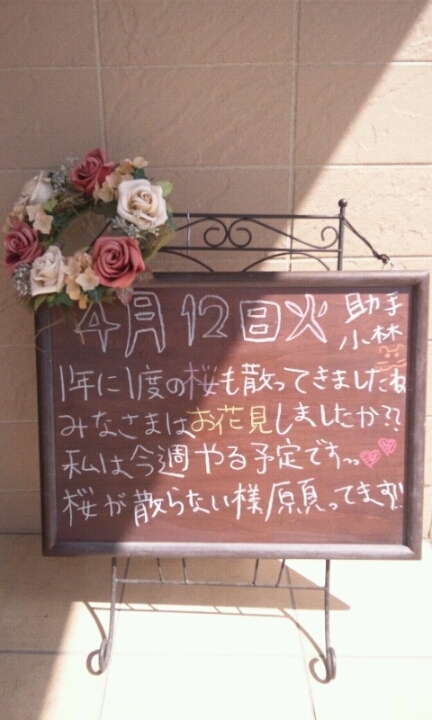 4月12日火 助手
小林
1年に1度の桜も散ってきましたね
みなさまはお花見しましたか??
私は今週やる予定ですっ
桜が散らない様願ってます!